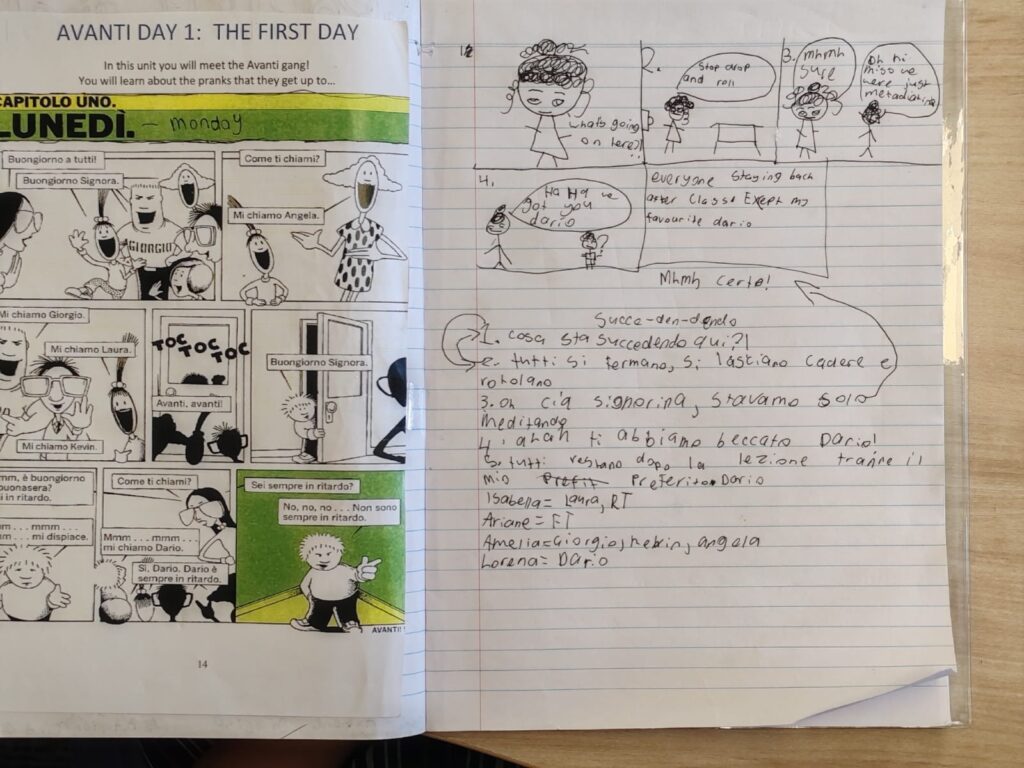 AVANTI DAY 1: THE FIRST DAY
In this unit you will meet the Avanti gang!
You will learn about the pranks that they get up to...
CAPITOLO UNO.
LUNEDÌ. - monday
Buongiorno a tutti!
Buongiorno Signora.
GIORGIO
Come ti chiami?
Mi chiamo Angela.
Mi chiamo Giorgio.
Mi chiamo Laura.
Mi chiamo Kevin.
TOC TOC TOC
Avanti, avanti!
Buongiorno Signora.
mm, è buongiorno
buonasera?
i in ritardo.
mm . . . mmm . . .
. . . mi dispiace.
Come ti chiami?
Mmm . . . mmm . . .
mi chiamo Dario.
Sì, Dario. Dario è
sempre in ritardo.
Sei sempre in ritardo?
No, no, no . . . Non sono
sempre in ritardo.
AVANTI!
14
whats going
on here?!
2.
Stop drop
and roll
3.
mhmh
sure
oh hi
miss we
here just
metadiating
4.
Ha Ha we
got you
dario
everyone staying back
after class Except my
favourite dario
Mhmh certo!
Succe-den-dendo
1. cosa sta succedendo qui?!
2. tutti si fermano, si lastiano cadere e
rotolano
3. oh cia signorina, stavamo solo
meditando
4. ahah ti abbiamo beccato Dario!
5. tutti restano dopo la lezione tranne il
mio Prefit Preferito Dario
Isabella = Laura, RT
Ariane = FT
Amelia = Giorgio, kebin, angela
Lorena = Dario